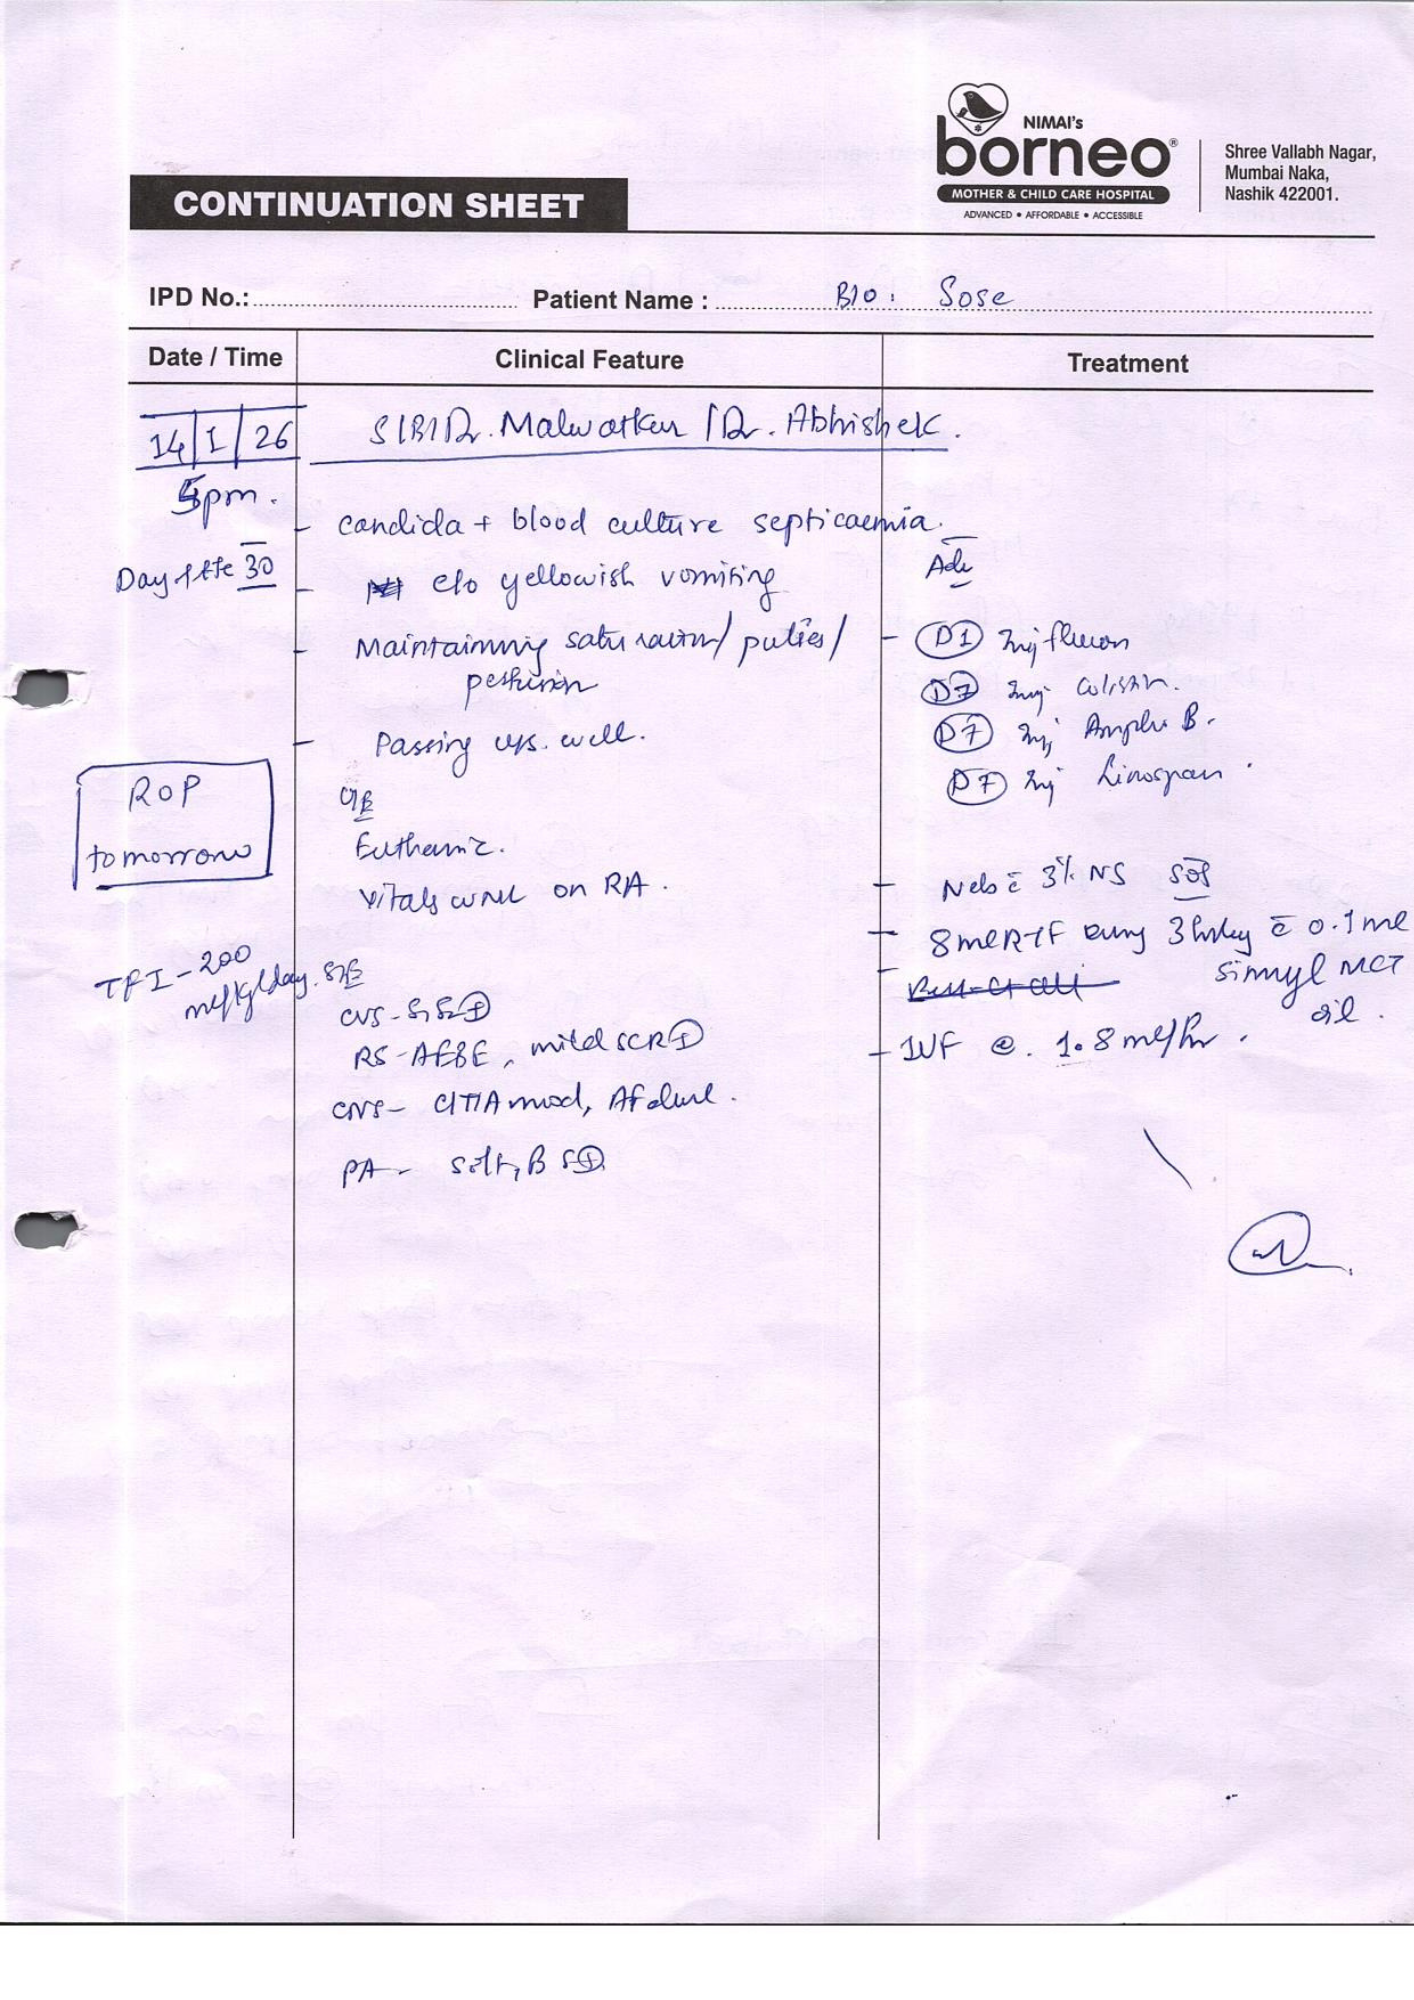 NIMAI's
borneo®
MOTHER & CHILD CARE HOSPITAL
ADVANCED • AFFORDABLE • ACCESSIBLE
Shree Vallabh Nagar,
Mumbai Naka,
Nashik 422001.
CONTINUATION SHEET
IPD No.: Patient Name : B/O: Sose
Date / Time Clinical Feature Treatment
14/1/26 S/B/Dr. Malwatkar / Dr. Abhishek.
5pm.
- candida + blood culture septicaemia.
Day of life 30
- c/o yellowish vomiting
- Maintaining saturation/ pulses/
perfusion
- Passing u/s. well.
ROP
tomorrow
O/E
Euthermic.
Vitals WNL on RA.
TFI-200
ml/kg/day.
S/E
CVS-S1S2⊕
RS-AEBE, mild SCR⊕
CNS- C/T/A mod,
PA- soft, BS⊕
Adv
- D1 Inj
D7 Inj Colistin.
D7 Inj Ampho B.
D7 Inj Linospan.
- Neb c̄ 3% NS SOS
- 8ml RTF every 3 hrly c̄ 0.1ml
simyl MCT
oil.
- IVF @. 1.8ml/hr.